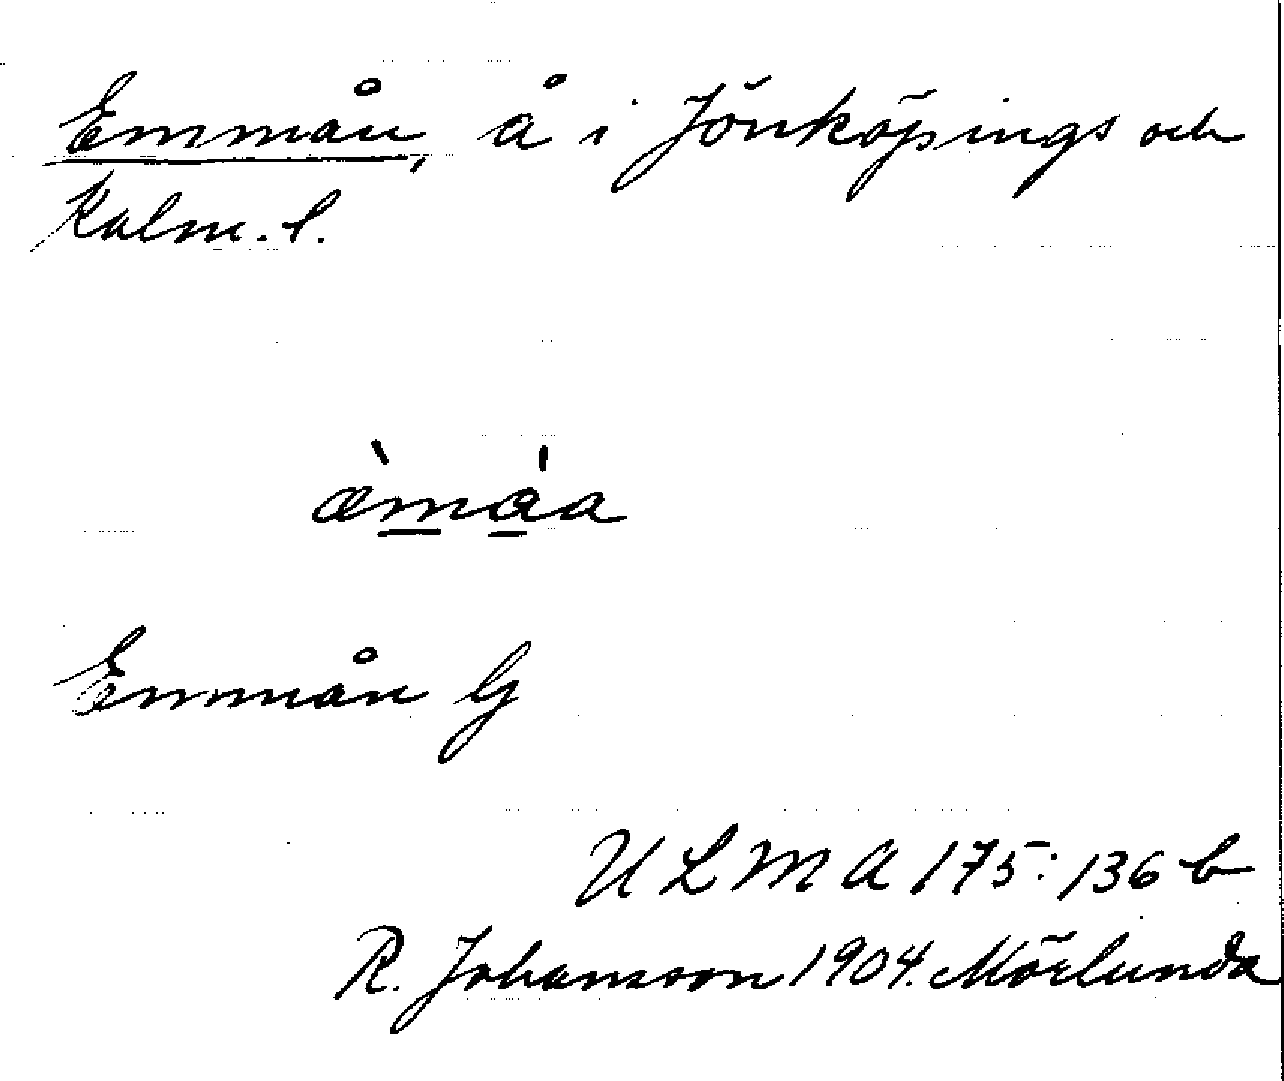 Emmån, å i Jönköpings och
Kalm. l.
æ̀m̲ǻ̲a
Emmån G
ULMA 175:136 b
R. Johansson 1904. Mörlunda